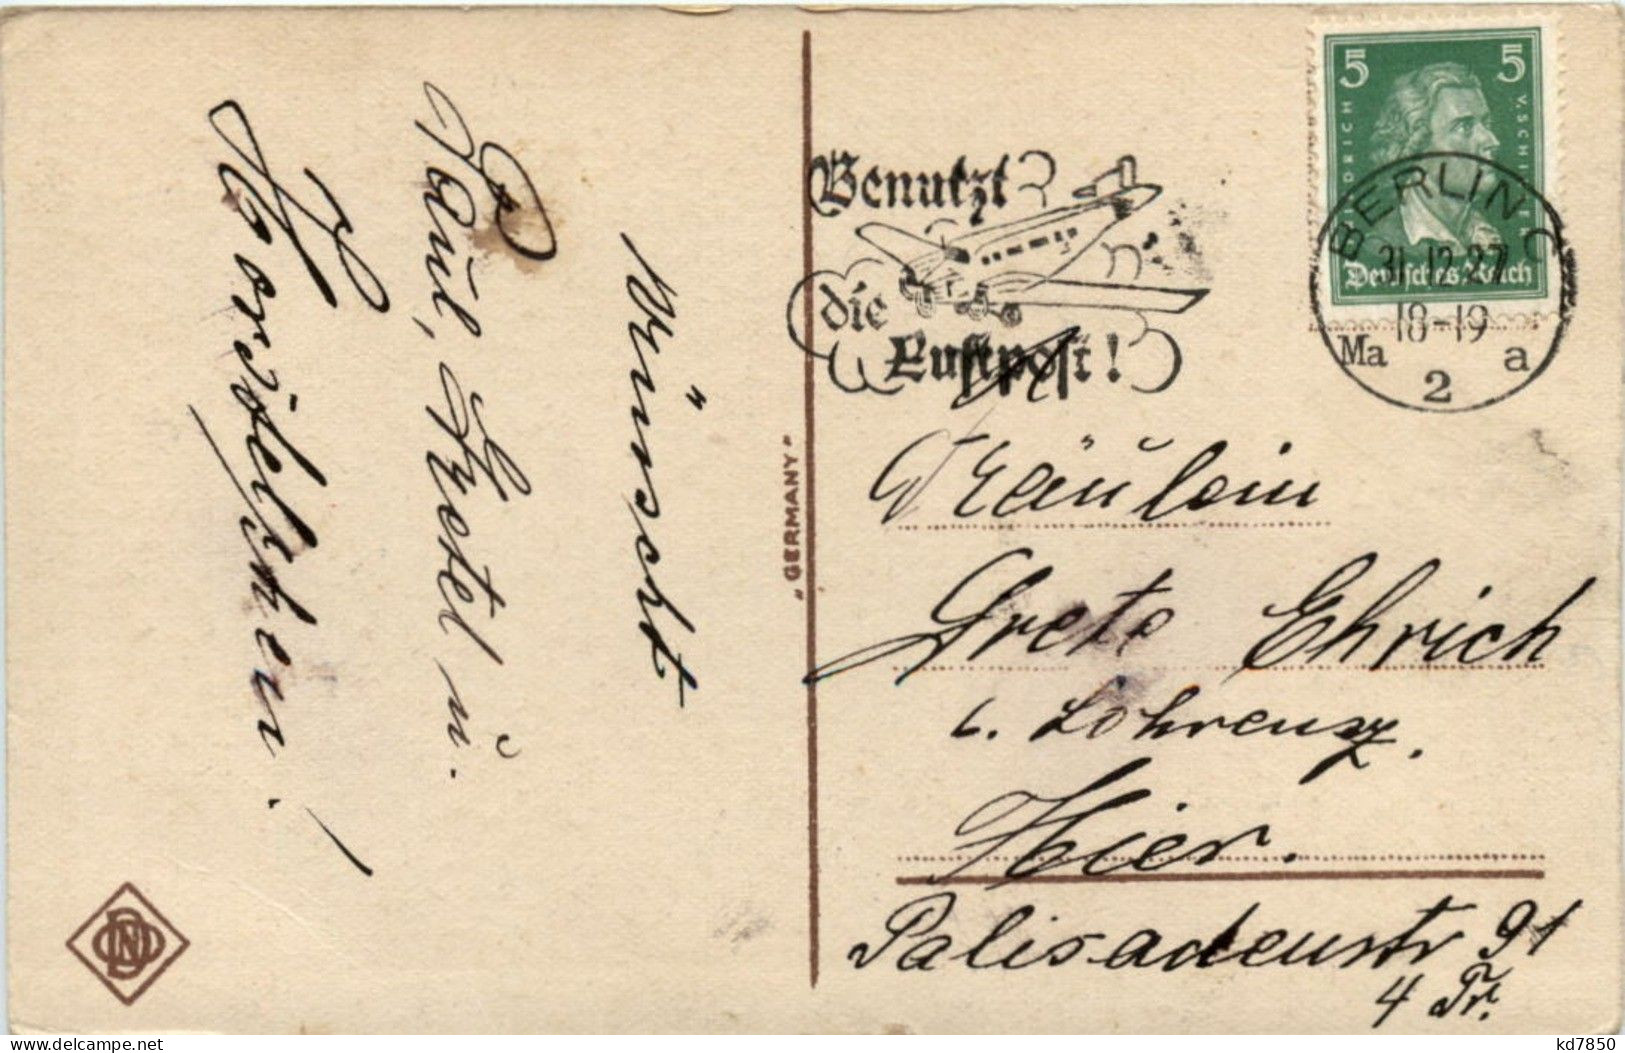 Wünscht
Paul, Gretel u.
Benutzt
die
Luftpost!
5 5
FRIEDRICH V. SCHILLER
Deutsches Reich
BERLIN C
31.12.27
18-19
Ma 2 a
"GERMANY"
Fräulein
Grete Ehrich
b. Lohrenz.
Hier.
Palisadenstr 91
4 Tr.
delcampe.net
kd7850